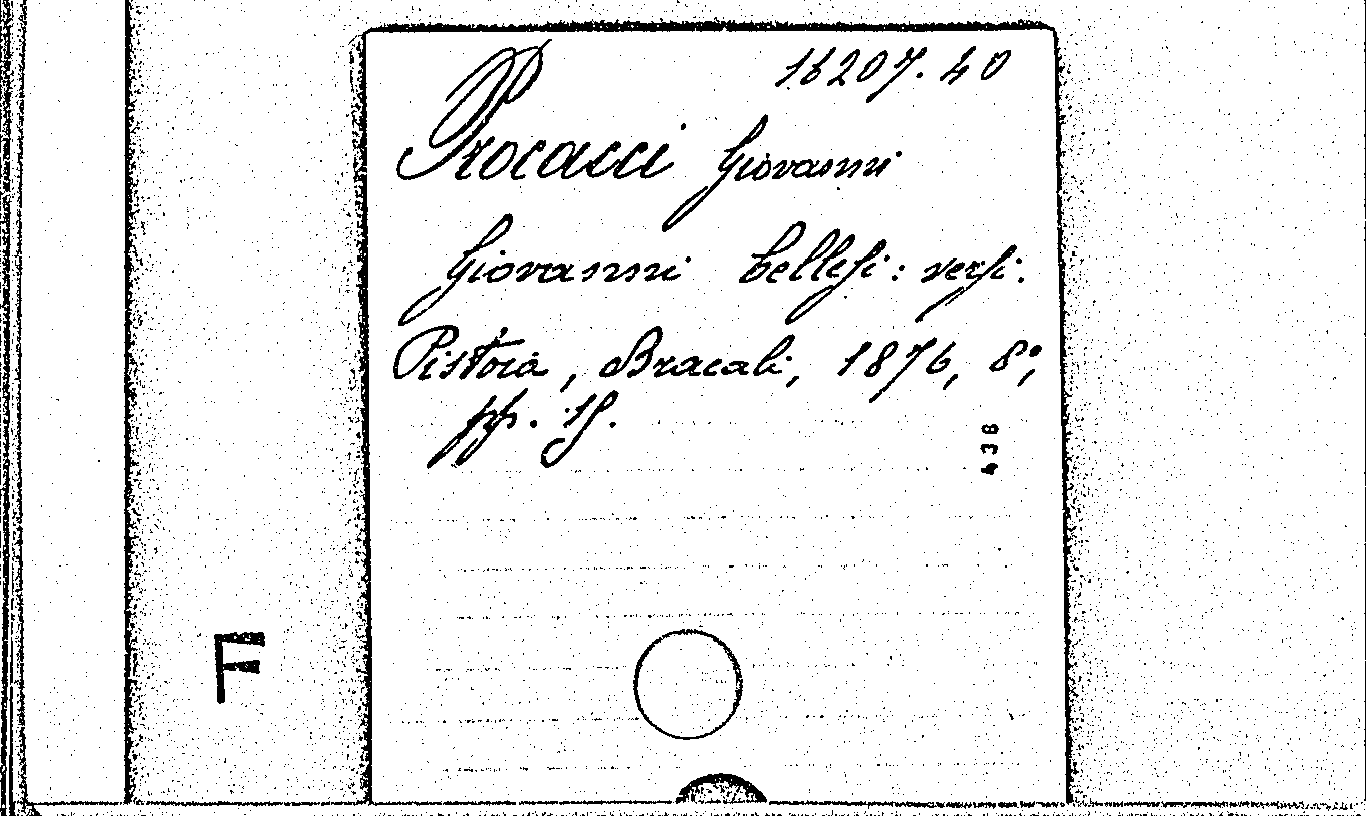 16207.40
Procacci Giovanni
Giovanni bellesi: versi.
Pistoia, Bracali, 1876, 8°,
pp. 15.
436
F